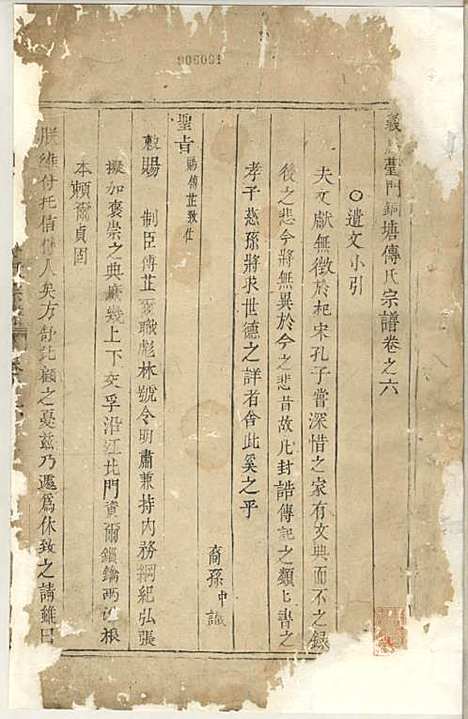 900061
義烏臺門銅塘傅氏宗譜卷之六
○遺文小引
夫文獻無徵於杞宋孔子嘗深惜之家有文典而不之錄
後之悲今將無異於今之悲昔故凡封誥傳記之類匕書之
孝子慈孫將求世德之詳者舍此奚之乎
裔孫中識
聖旨賜傅芷致仕
敕賜 制臣傅芷爾職彪林號令明肅兼持內務綱紀弘張
擬加褒崇之典庶幾上下交孚沿江北門資爾鎖鑰兩 根
本賴爾貞固
朕維付托信 人矣方舒北顧之憂茲乃遽為休致之請雖曰